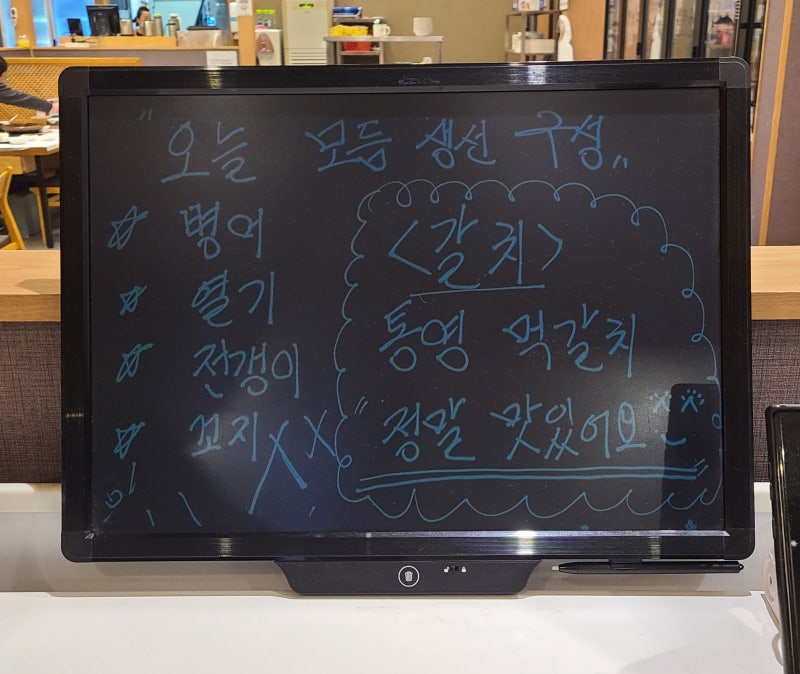 "오늘 모듬 생선 구성"
☆ 병어
☆ 열기
☆ 전갱이
☆ 꼬지 XX
<갈치>
통영 먹갈치
"정말 맛있어요"